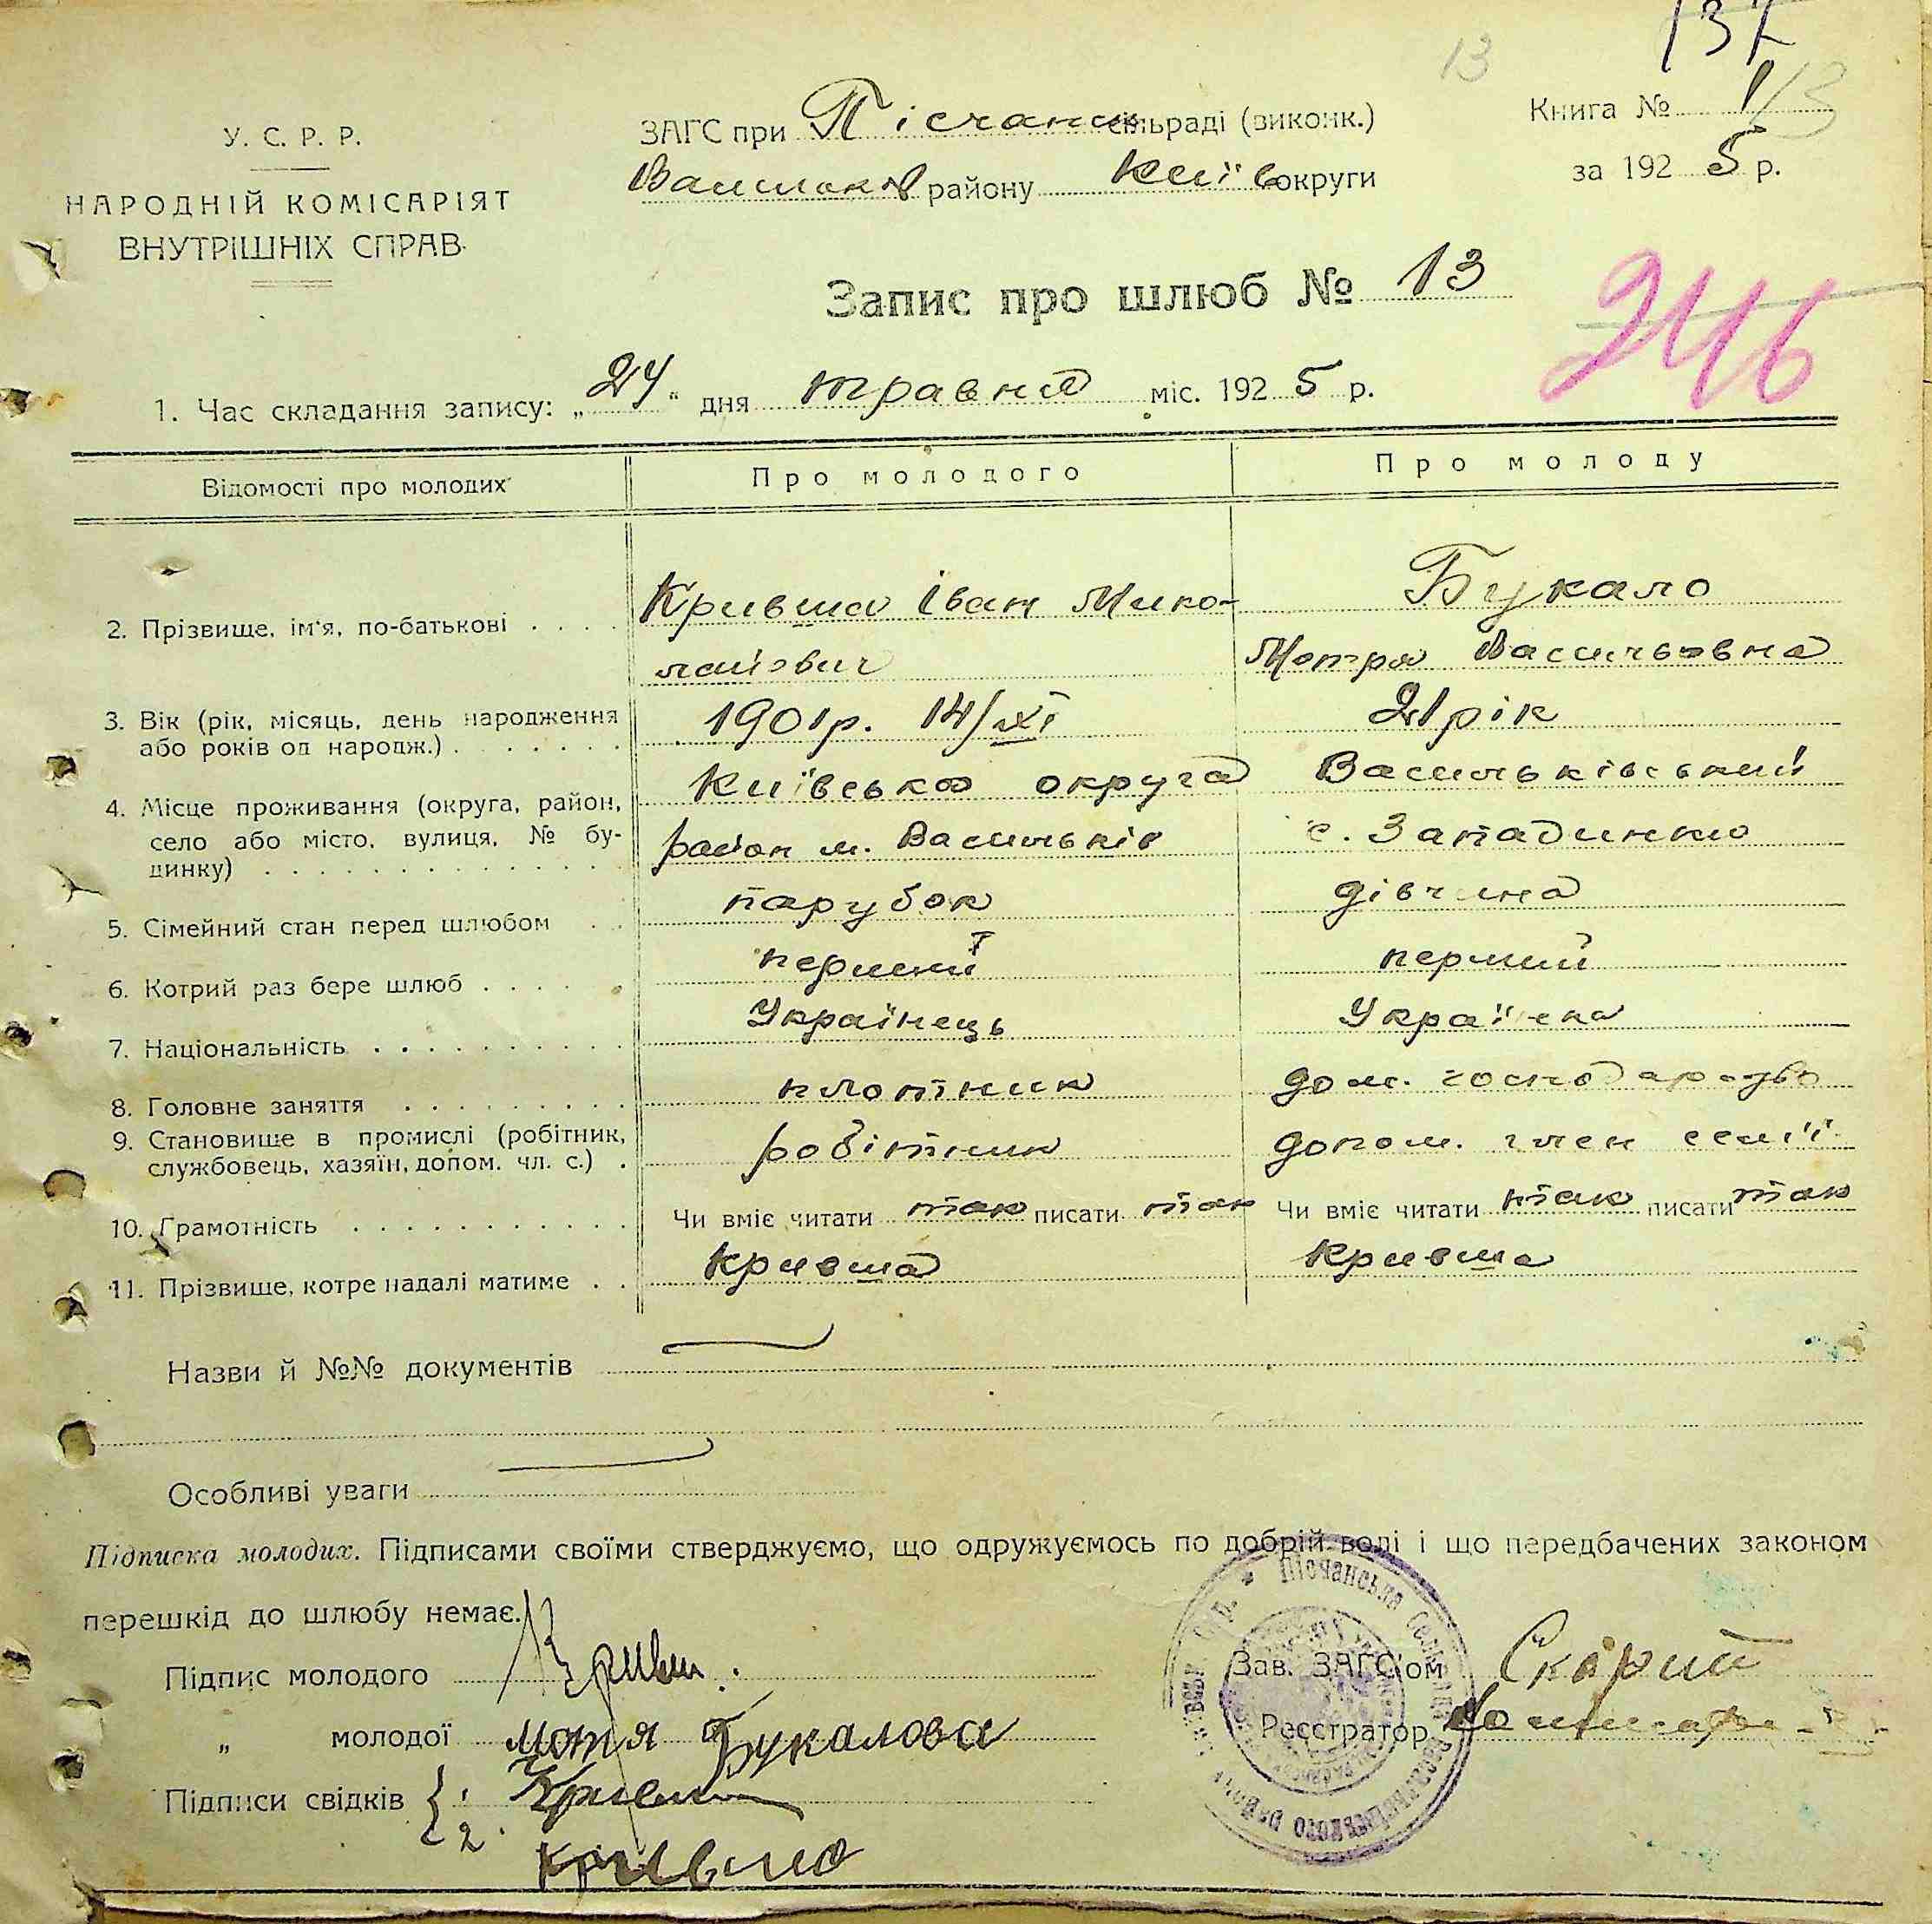 137
13
У. С. Р. Р.
НАРОДНІЙ КОМІСАРІЯТ
ВНУТРІШНІХ СПРАВ
ЗАГС при Пісчанськ сільраді (виконк.)
Васильків району Київ округи
Книга № 1 13
за 192 5 р.
Запис про шлюб № 13
246
1. Час складання запису: „24“ дня травня міс. 192 5 р.
Відомості про молодих
Про молодого
Про молоду
2. Прізвище, ім'я, по-батькові . . . .
Кривша Іван Мико-
лайович
Букало
Мотря Васильовна
3. Вік (рік, місяць, день народження
або років од народж.) . . . . . .
1901р. 14/XI
21 рік
4. Місце проживання (округа, район,
село або місто, вулиця, № бу-
динку) . . . . . . . . . . . . . .
Київська округа Васильківський
район м. Васильків
с. Западинка
5. Сімейний стан перед шлюбом . .
парубок
дівчина
6. Котрий раз бере шлюб . . . . .
перший
перший
7. Національність . . . . . . . . . .
Українець
Українка
8. Головне заняття . . . . . . . . .
плотник
дом. господарство
9. Становище в промислі (робітник,
службовець, хазяїн, допом. чл. с.) .
робітник
допом. член семії
10. Грамотність . . . . . . . . . . .
Чи вміє читати так писати так
Чи вміє читати так писати так
11. Прізвище, котре надалі матиме . .
Кривша
Кривша
Назви й №№ документів
Особливі уваги
Підписка молодих. Підписами своїми стверджуємо, що одружуємось по добрій волі і що передбачених законом
перешкід до шлюбу немає.
Підпис молодого Кривш.
„ молодої мотя Букалова
Підписи свідків 1
2.
Кривша
Зав. ЗАГС'ом Скорий
Реєстратор
Пісчанська
Васильківського району